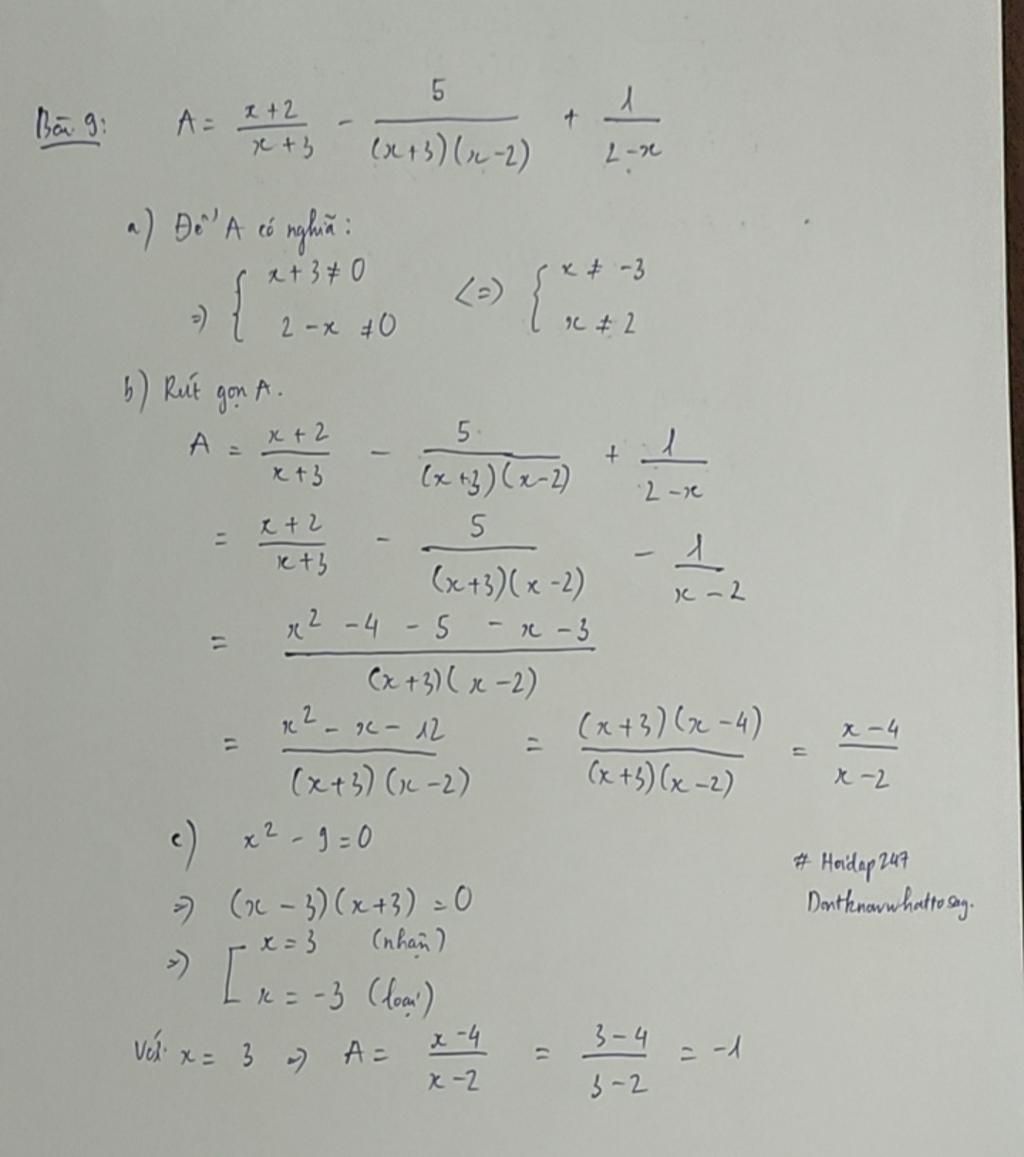 Bài 9: A = \frac{x+2}{x+3} - \frac{5}{(x+3)(x-2)} + \frac{1}{2-x}
a) Để A có nghĩa:
=> { x+3 ≠ 0 <=> { x ≠ -3
2-x ≠ 0 x ≠ 2
b) Rút gọn A.
A = \frac{x+2}{x+3} - \frac{5}{(x+3)(x-2)} + \frac{1}{2-x}
= \frac{x+2}{x+3} - \frac{5}{(x+3)(x-2)} - \frac{1}{x-2}
= \frac{x^2 - 4 - 5 - x - 3}{(x+3)(x-2)}
= \frac{x^2 - x - 12}{(x+3)(x-2)} = \frac{(x+3)(x-4)}{(x+3)(x-2)} = \frac{x-4}{x-2}
c) x^2 - 9 = 0
=> (x-3)(x+3) = 0
=> [ x = 3 (nhận)
x = -3 (loại)
Với x = 3 => A = \frac{x-4}{x-2} = \frac{3-4}{3-2} = -1
# Hoidap247
Dontknowwhattosay.